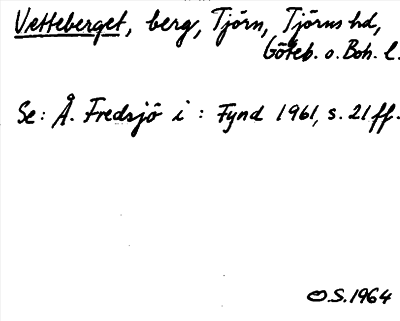 Vetteberget, berg, Tjörn, Tjörns hd,
Göteb. o. Boh. l.
Se: Å. Fredsjö i : Fynd 1961, s. 21 ff.
O.S. 1964